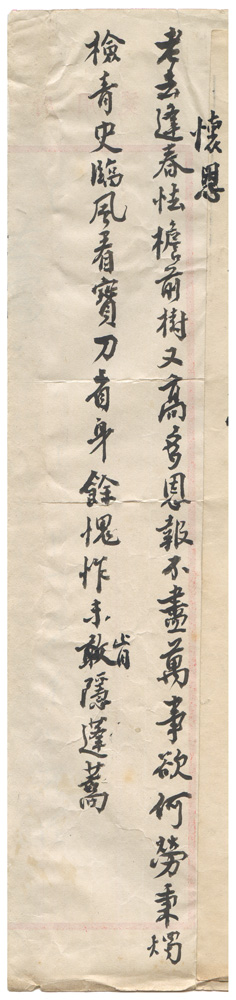 懷恩
老去逢春怯檐前樹又高多恩報不盡萬事欲何勞秉燭
檢青史臨風看寶刀省身餘愧怍未敢隱蓬蒿
肯